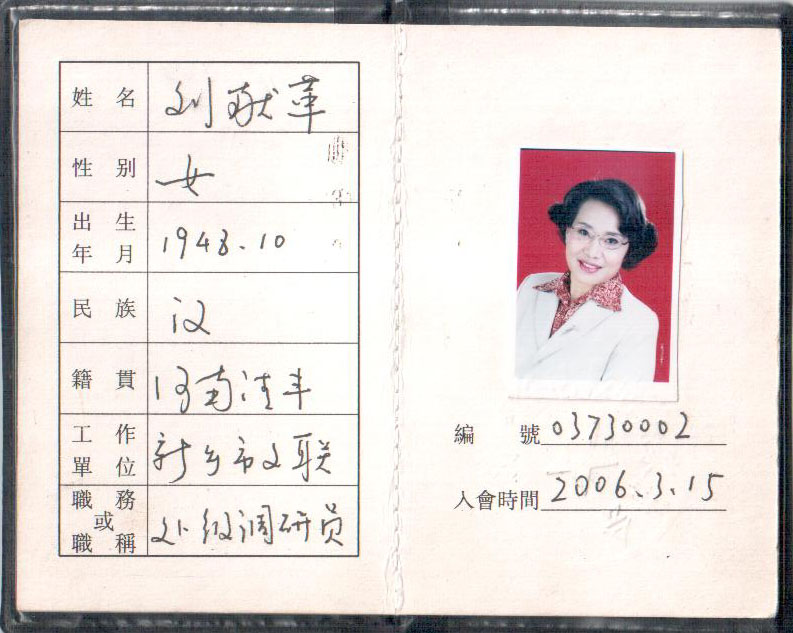 姓名 刘献革
性别 女
出生年月 1948.10
民族 汉
籍貫 河南清丰
工作單位 新乡市文联
職務或職稱 处级调研员
編號 03730002
入會時間 2006.3.15